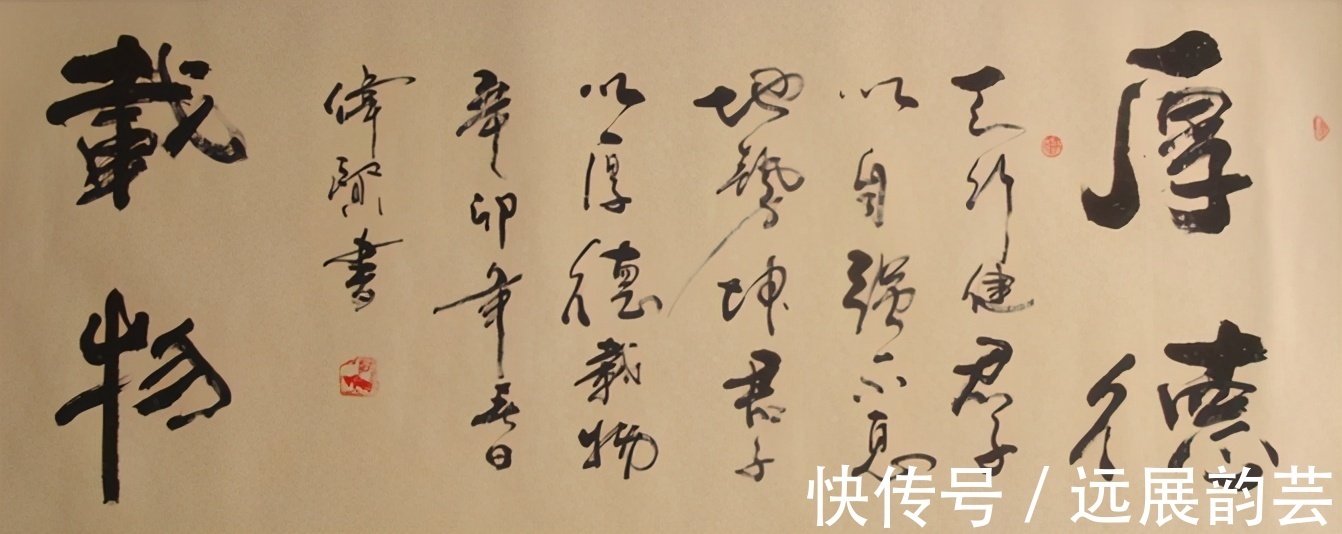 厚德
天行健君子
以自强不息
地势坤君子
以厚德载物
辛卯年春日
偉賢書
載物
快传号 / 远展韵芸